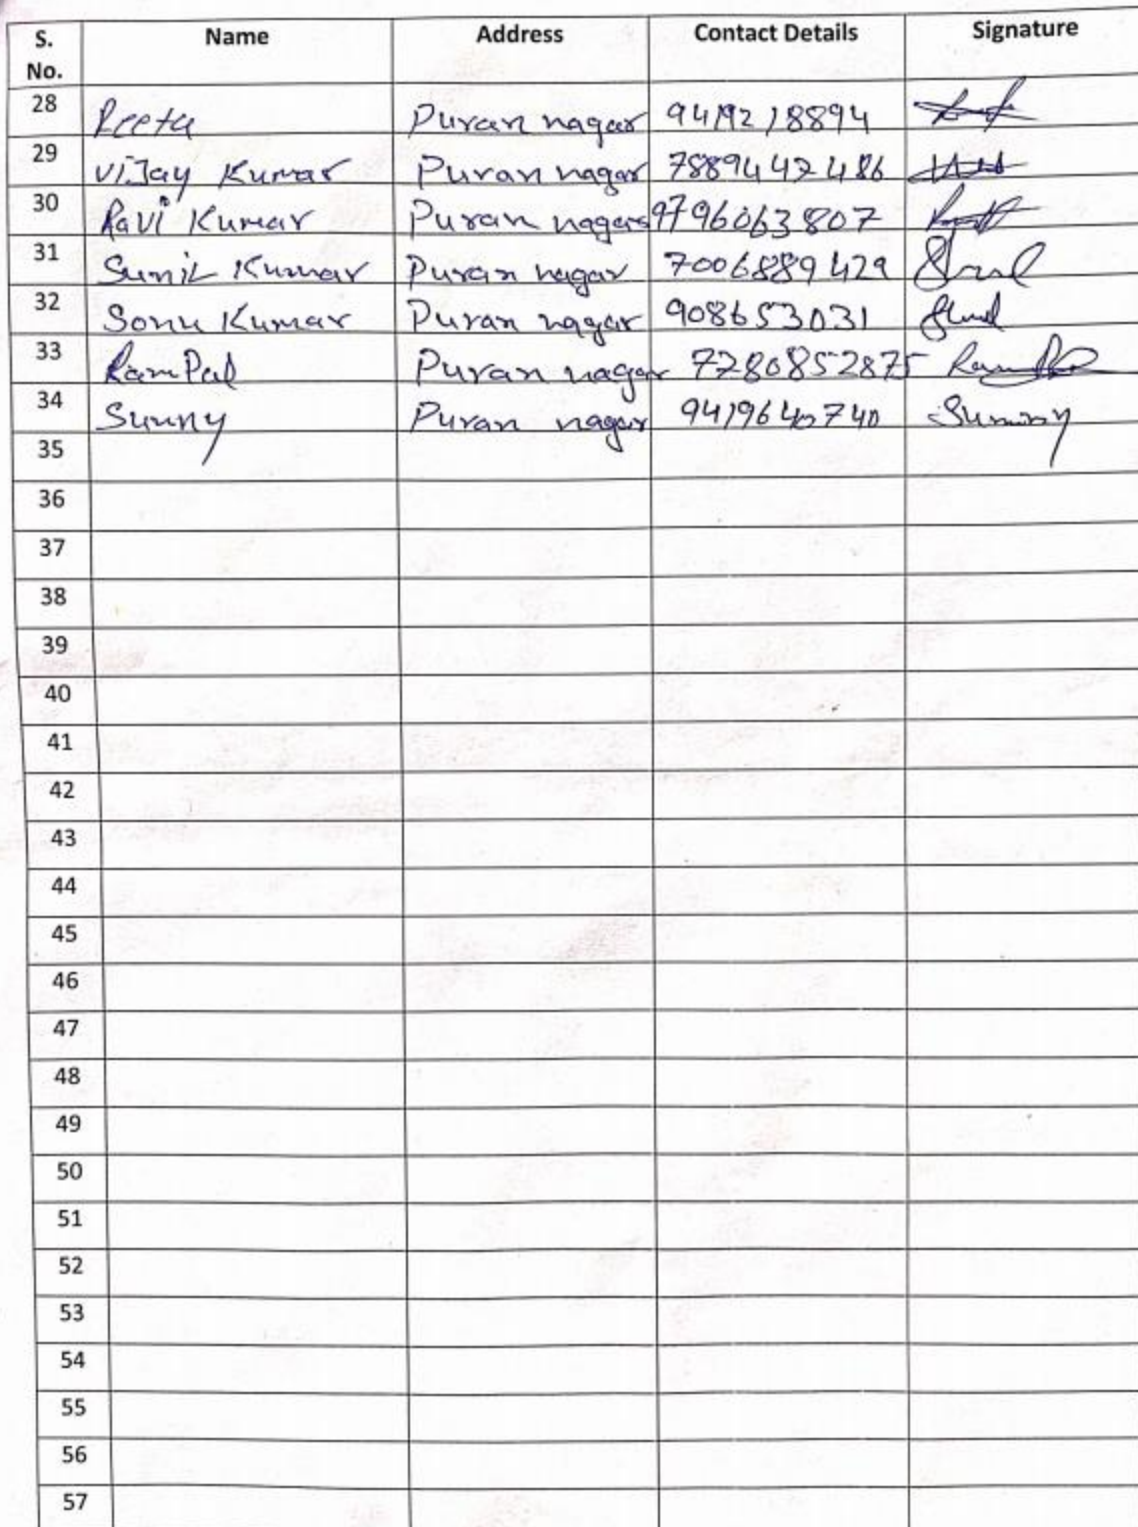 S. No. Name Address Contact Details Signature
28 Reeta Puran nagar 9419218894
29 ViJay Kumar Puran nagar 7889442486
30 Ravi Kumar Puran nagar 9796063807
31 Sunil Kumar Puran nagar 7006889429
32 Sonu Kumar Puran nagar 908653031
33 Ram Pal Puran nagar 7280852875
34 Sunny Puran nagar Sunny
35
36
37
38
39
40
41
42
43
44
45
46
47
48
49
50
51
52
53
54
55
56
57